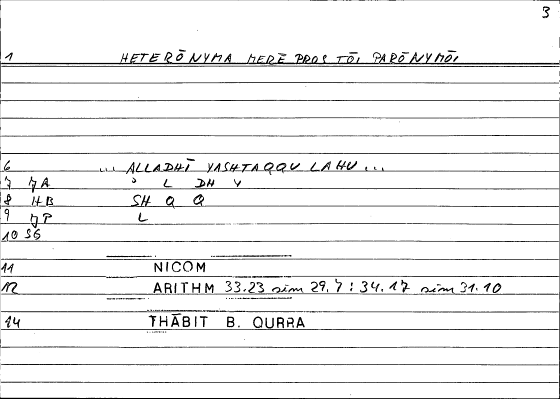 3
1 HETERŌNYMA MERĒ PROS TŌI PARŌNYMŌI
6 ... ALLADHĪ YASHTAQQU LAHU ...
7 7A ʾ L DH Y
8 HB SH Q Q
9 7P L
10 36
11 NICOM
12 ARITHM 33.23 sim 29.7 : 34.17 sim 31.10
14 THĀBIT B. QURRA